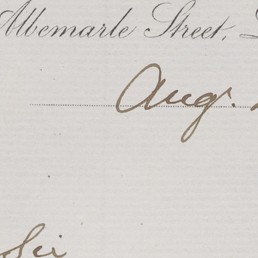 Albemarle Street,
Aug.
Sir